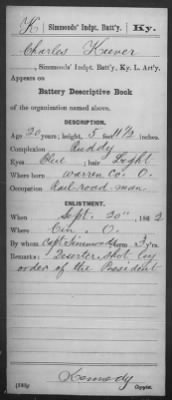 K Simmonds' Indpt. Batt'y. Ky.
Charles Keever
, Simmonds' Indpt. Batt'y, Ky. L. Art'y.
Appears on
Battery Descriptive Book
of the organization named above.
DESCRIPTION.
Age 20 years; height, 5 feet 4½ inches.
Complexion Ruddy
Eyes Blue ; hair Light
Where born Warren Co. O.
Occupation Rail road man
ENLISTMENT.
When Sept. 20", 1862
Where Cin. O.
By whom Capt Simmonds term 3 y'rs.
Remarks: Deserter shot by
order of the President
Kennedy
Copyist.